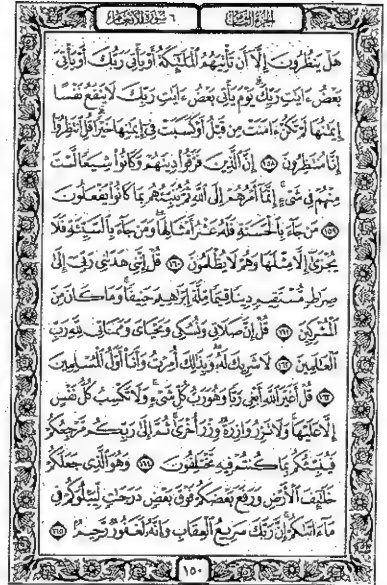 الجزء الثامن ٦ سورة الأنعام
هَلْ يَنظُرُونَ إِلَّا أَن تَأْتِيَهُمُ الْمَلَٰٓئِكَةُ أَوْ يَأْتِىَ رَبُّكَ أَوْ يَأْتِىَ
بَعْضُ ءَايَٰتِ رَبِّكَ يَوْمَ يَأْتِى بَعْضُ ءَايَٰتِ رَبِّكَ لَا يَنفَعُ نَفْسًا
إِيمَٰنُهَا لَمْ تَكُنْ ءَامَنَتْ مِن قَبْلُ أَوْ كَسَبَتْ فِىٓ إِيمَٰنِهَا خَيْرًا قُلِ انتَظِرُوٓا
إِنَّا مُنتَظِرُونَ ١٥٨ إِنَّ الَّذِينَ فَرَّقُوا دِينَهُمْ وَكَانُوا شِيَعًا لَّسْتَ
مِنْهُمْ فِى شَىْءٍ إِنَّمَآ أَمْرُهُمْ إِلَى اللَّهِ ثُمَّ يُنَبِّئُهُم بِمَا كَانُوا يَفْعَلُونَ
١٥٩ مَن جَآءَ بِالْحَسَنَةِ فَلَهُۥ عَشْرُ أَمْثَالِهَا وَمَن جَآءَ بِالسَّيِّئَةِ فَلَا
يُجْزَىٰٓ إِلَّا مِثْلَهَا وَهُمْ لَا يُظْلَمُونَ ١٦٠ قُلْ إِنَّنِى هَدَىٰنِى رَبِّىٓ إِلَىٰ
صِرَٰطٍ مُّسْتَقِيمٍ دِينًا قِيَمًا مِّلَّةَ إِبْرَٰهِيمَ حَنِيفًا وَمَا كَانَ مِنَ
الْمُشْرِكِينَ ١٦١ قُلْ إِنَّ صَلَاتِى وَنُسُكِى وَمَحْيَاىَ وَمَمَاتِى لِلَّهِ رَبِّ
الْعَٰلَمِينَ ١٦٢ لَا شَرِيكَ لَهُۥ وَبِذَٰلِكَ أُمِرْتُ وَأَنَا أَوَّلُ الْمُسْلِمِينَ
١٦٣ قُلْ أَغَيْرَ اللَّهِ أَبْغِى رَبًّا وَهُوَ رَبُّ كُلِّ شَىْءٍ وَلَا تَكْسِبُ كُلُّ نَفْسٍ
إِلَّا عَلَيْهَا وَلَا تَزِرُ وَازِرَةٌ وِزْرَ أُخْرَىٰ ثُمَّ إِلَىٰ رَبِّكُم مَّرْجِعُكُمْ
فَيُنَبِّئُكُم بِمَا كُنتُمْ فِيهِ تَخْتَلِفُونَ ١٦٤ وَهُوَ الَّذِى جَعَلَكُمْ
خَلَٰٓئِفَ الْأَرْضِ وَرَفَعَ بَعْضَكُمْ فَوْقَ بَعْضٍ دَرَجَٰتٍ لِّيَبْلُوَكُمْ فِى
مَآ ءَاتَىٰكُمْ إِنَّ رَبَّكَ سَرِيعُ الْعِقَابِ وَإِنَّهُۥ لَغَفُورٌ رَّحِيمٌ ١٦٥
١٥٠